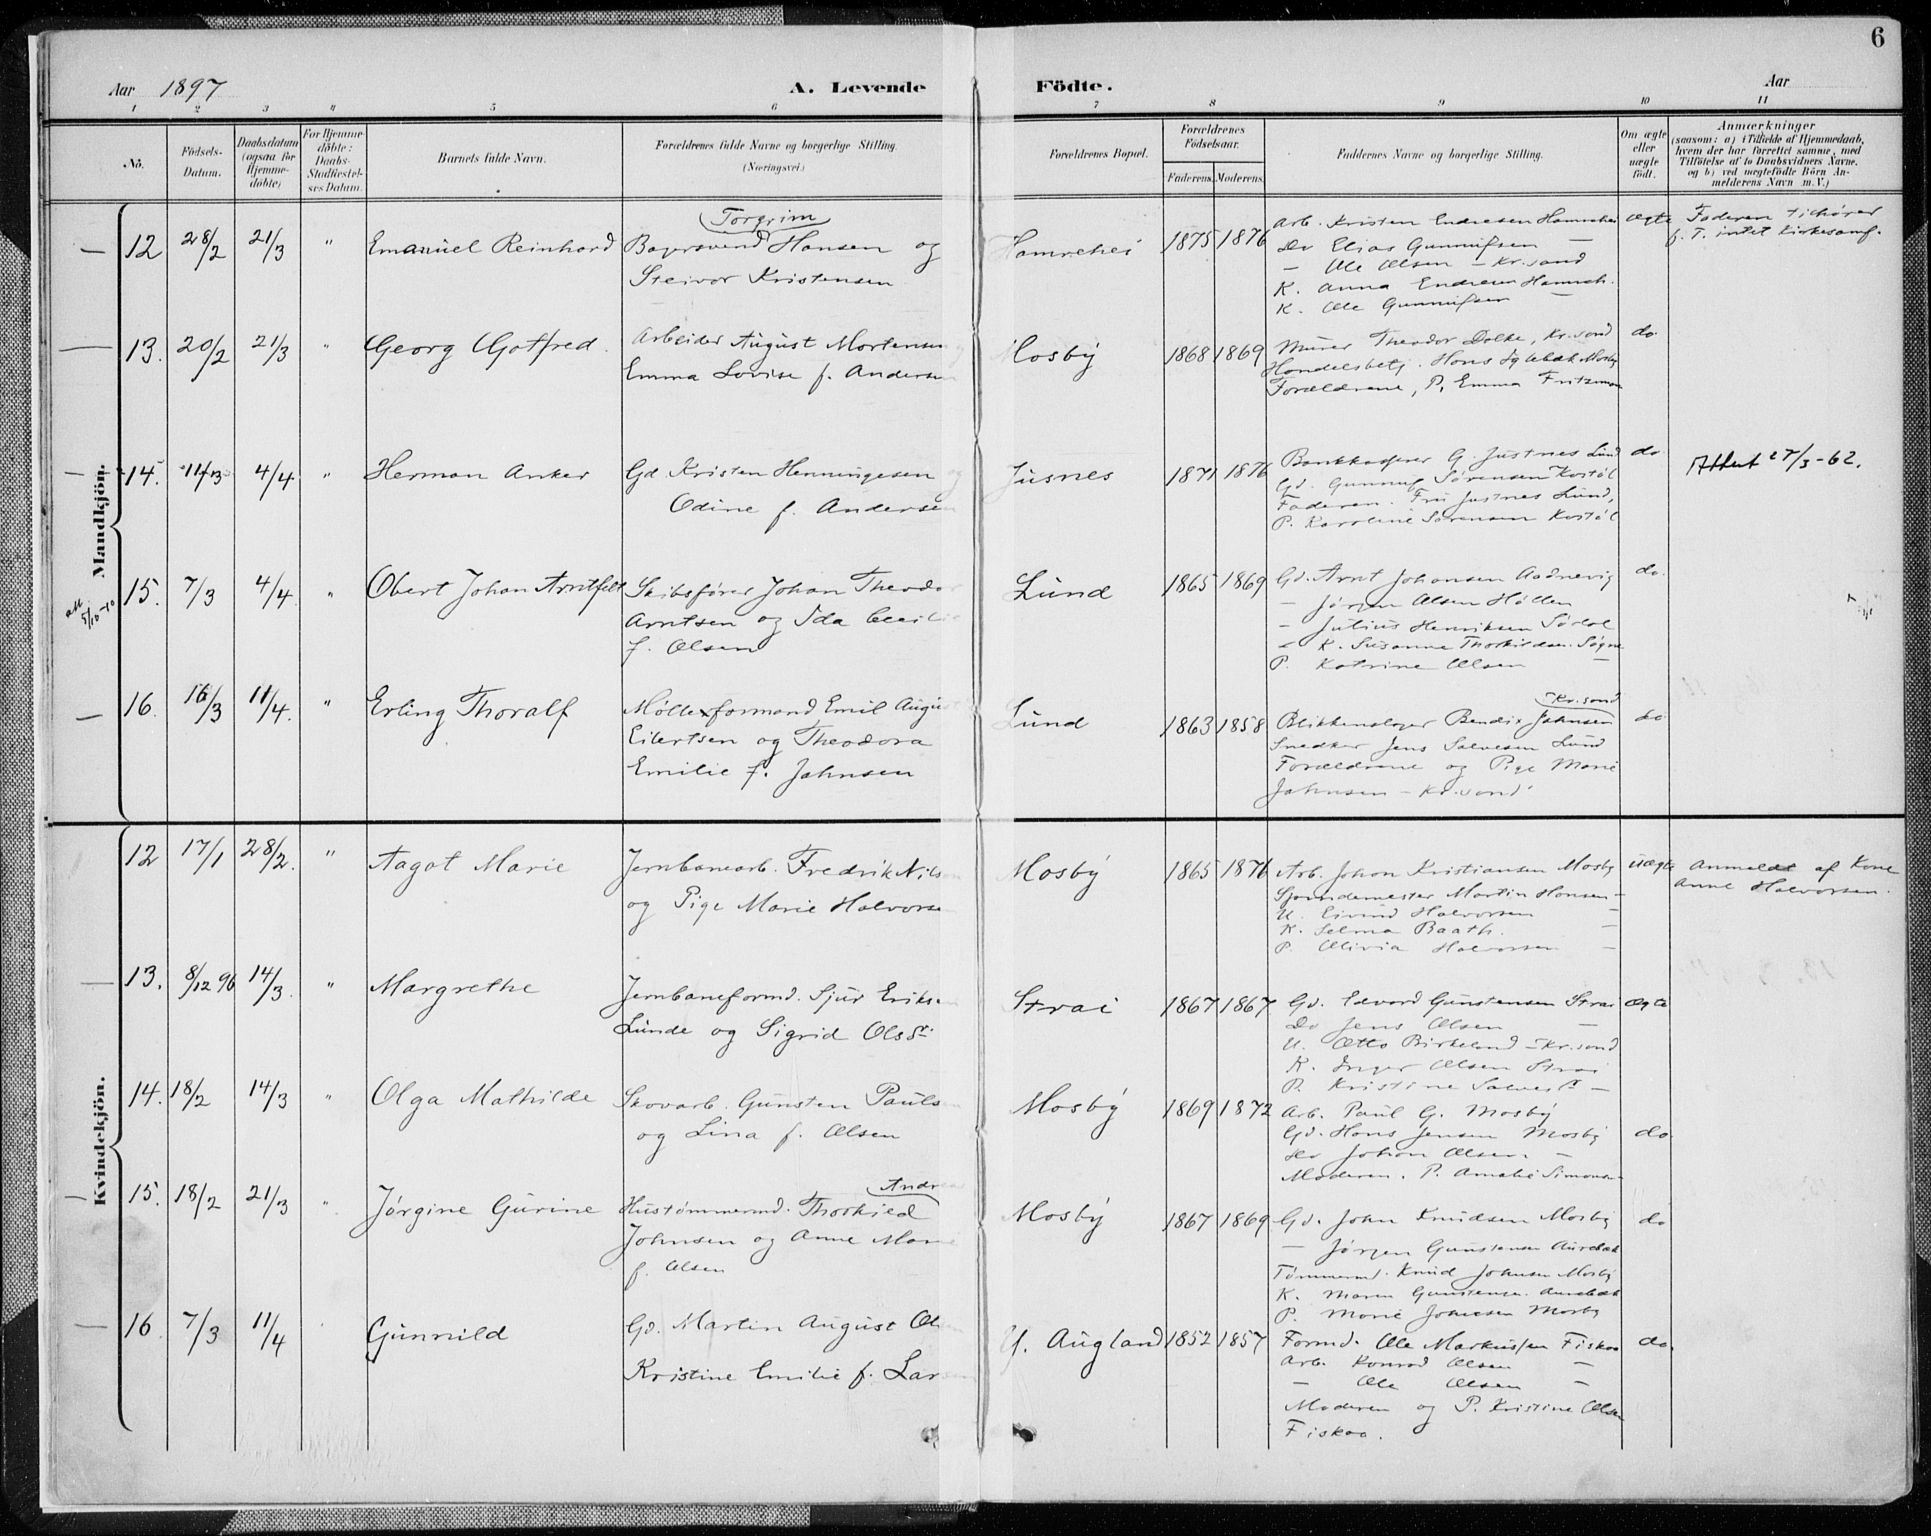 6
Aar 1897 A. Levende Födte. Aar
1 2 3 4 5 6 7 8 9 10 11
No. Födsels-Datum. Daabsdatum (ogsaa for Hjemme-döbte) For Hjemme-döbte: Daabs-Stadfæstel-ses Datum. Barnets fulde Navn. Forældrenes fulde Navne og borgerlige Stilling. (Næringsvei.) Forældrenes Bopæl. Forældrenes Födselsaar. Faderens. Moderens. Faddernes Navne og borgerlige Stilling. Om ægte eller uægte födt. Anmærkninger (saasom: a) i Tilfælde af Hjemmedaab, hvem der har forrettet samme, med Tilföielse af to Daabsvidners Navne. og b) ved uægtefödte Börn An-melderens Navn m. V.)
Mandkjön.
12 28/2 21/3 " Emanuel Reinhard
Torgrim
Bagersvend Hansen og
Steivor Kristensen
Hamrehei 1875 1876
Arb. Kristen Endresen Hamrehei
Do Elias Gunnufsen —
— Ole Olsen — Kr.sand
K. Anna Endresen Hamreh.
K. Ole Gunnufsen —
ægte
Faderen tilhører
f. T. intet Kirkesamf.
13. 20/2 21/3 " Georg Gotfred.
Arbeider August Mortensen
Emma Lovise f. Andersen
Mosby 1868 1869
Murer Theodor Dolke, Kr.sand
Handelsbetj. Hans Mosby
Forældrene, P. Emma
do.
14. 11/3 4/4 " Herman Anker
Gd. Kristen Henningesen og
Odine f. Andersen
Jusnes 1871 1876
Bankkasserer G. Justnes Lund
Gd. Gunnuf Sørensen Kostøl
Faderen. Fru Justnes Lund,
P. Karoline Sørensen Kostøl
do.
Attest 27/3-62.
att. 5/10-10
15. 7/3 4/4 " Obert Johan Arntfelt
Skibsfører Johan Theodor
Arntsen og Ida
f. Olsen
Lund 1865 1869
Gd. Arnt Johansen Aadnevig
— Jørgen Olsen Høllen
— Julius Henriksen
K. Susanne Thorkildsen. Søgne
P. Katrine Olsen —
do.
16. 16/3 11/4. " Erling Thoralf
Mølleformand Emil August
Eilertsen og Theodora
Emilie f. Jahnsen
Lund 1863 1858
Kr.sand
Blikkenslager Bendix Jahnsen
Snedker Jens Salvesen Lund
Forældrene og Pige Marie
Jahnsen — Kr.sand
do
Kvindekjön.
12 17/1 28/2. " Aagot Marie
Jernbanearb. Fredrik Nilsen
og Pige Marie Halvorsen
Mosby 1865 1876
Arb. Johan Kristiansen Mosby
Spindemester Martin Hansen —
U. Eivind Halvorsen —
K. Selma Baath. —
P. Olivia Halvorsen —
uægte
Anmeldt af Kone
Anne Halvorsen.
13. 8/12 96 14/3. " Margrethe
Jernbaneformd. Sjur Eriksen
Lunde og Sigrid Olsdt.
Strai 1867 1867
Gd. Edvard Gunstensen Strai
Do Jens Olsen —
U. Otto Birkeland — Kr.sand
K. Inger Olsen Strai
P. Kristine —
ægte
14. 18/2 14/3 " Olga Mathilde
Skovarb. Gunsten Paulsen
og Lina f. Olsen
Mosby 1869 1872
Arb. Paul G. Mosby
Gd. Hans Jensen Mosby
Do Johan Olsen —
Moderen. P. Amalie Simonsen
do.
15. 18/2 21/3 " Jørgine Gurine
Andreas
Hustømmermd. Thorkied
Johnsen og Anne Marie
f. Olsen
Mosby 1867 1869
Gd. John Knudsen Mosby
— Jørgen Gunstensen Aurebæk
Tømmermd. Knud Johnsen Mosby
K. Maren Gunstensen Aurebæk
P. Marie Johnsen Mosby
do
16 7/3 11/4 Gunnild
Gd. Martin August Olsen
Kristine Emilie f. Larsen
Y. Augland 1852 1857
Formd. Ole Markussen Fiskaa
Arb. Konrad Olsen —
— Ole Olsen —
Moderen og P. Kristine Olsen
Fiskaa.
do.